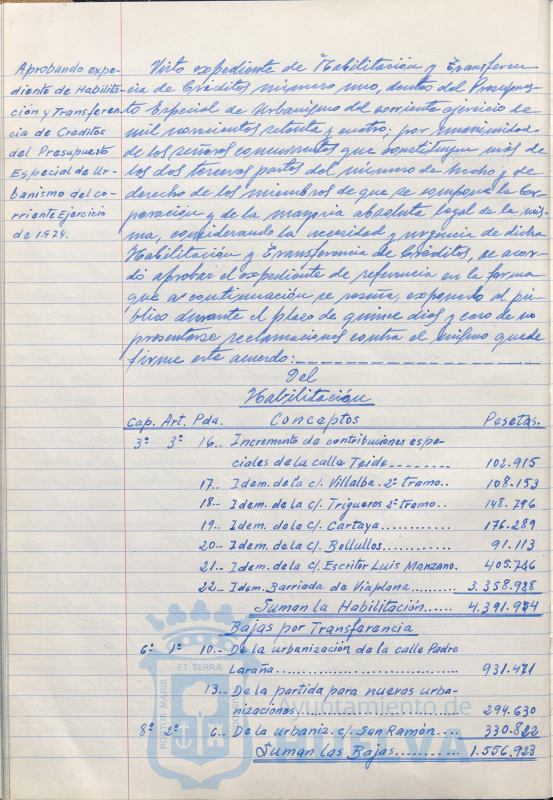 Aprobando expe-
diente de Habilita-
ción y Transferen-
cia de Creditos
del Presupuesto
Especial de Ur-
banismo del co-
rriente Ejercicio
de 1.974.
Visto expediente de Habilitación y Transferen
cia de Créditos número uno, dentro del Presupues-
to Especial de Urbanismo del corriente ejercicio de
mil novecientos setenta y cuatro; por unanimidad
de los señores concurrentes que constituyen más de
los dos terceras partes del número de hecho y de
derecho de los miembros de que se compone la Cor-
poración y de la mayoria absoluta legal de la mis-
ma, considerando la necesidad y urgencia de dicha
Habilitación y Transferencia de Créditos, se acor-
dó aprobar el expediente de referencia en la forma
que a continuación se reseña, exponerlo al pú-
blico durante el plazo de quince dias y caso de no
presentarse reclamaciones contra el mismo quede
firme este acuerdo:
Del
Habilitación
Cap. Art. Pda. Conceptos Pesetas.
3º 3º 16.. Incremento de contribuciones espe-
ciales de la calle Teide........ 102.915
17.. Idem. de la c/. Villalba. 2º tramo.. 108.153
18.. Idem. de la c/. Trigueros 2º tramo.. 148.796
19.. Idem. de la c/. Cartaya........... 176.289
20.- Idem. de la c/. Bollullos........... 91.113
21.. Idem. de la c/. Escritor Luis Manzano. 405.746
22.. Idem. Barriada de Viaplana....... 3.358.938
Suman la Habilitación...... 4.391.954
Bajas por Transferencia
6º 1º 10.. De la urbanización de la calle Padre
Laraña................................ 931.471
13.. De la partida para nuevas urba-
nizaciones........................... 294.630
8º 2º 6.. De la urbaniz. c/. San Ramón.... 330.822
Suman las Bajas........... 1.556.923
PORTUS MARIS ET TERRÆ CUSTODIA
Ayuntamiento de
HUELVA